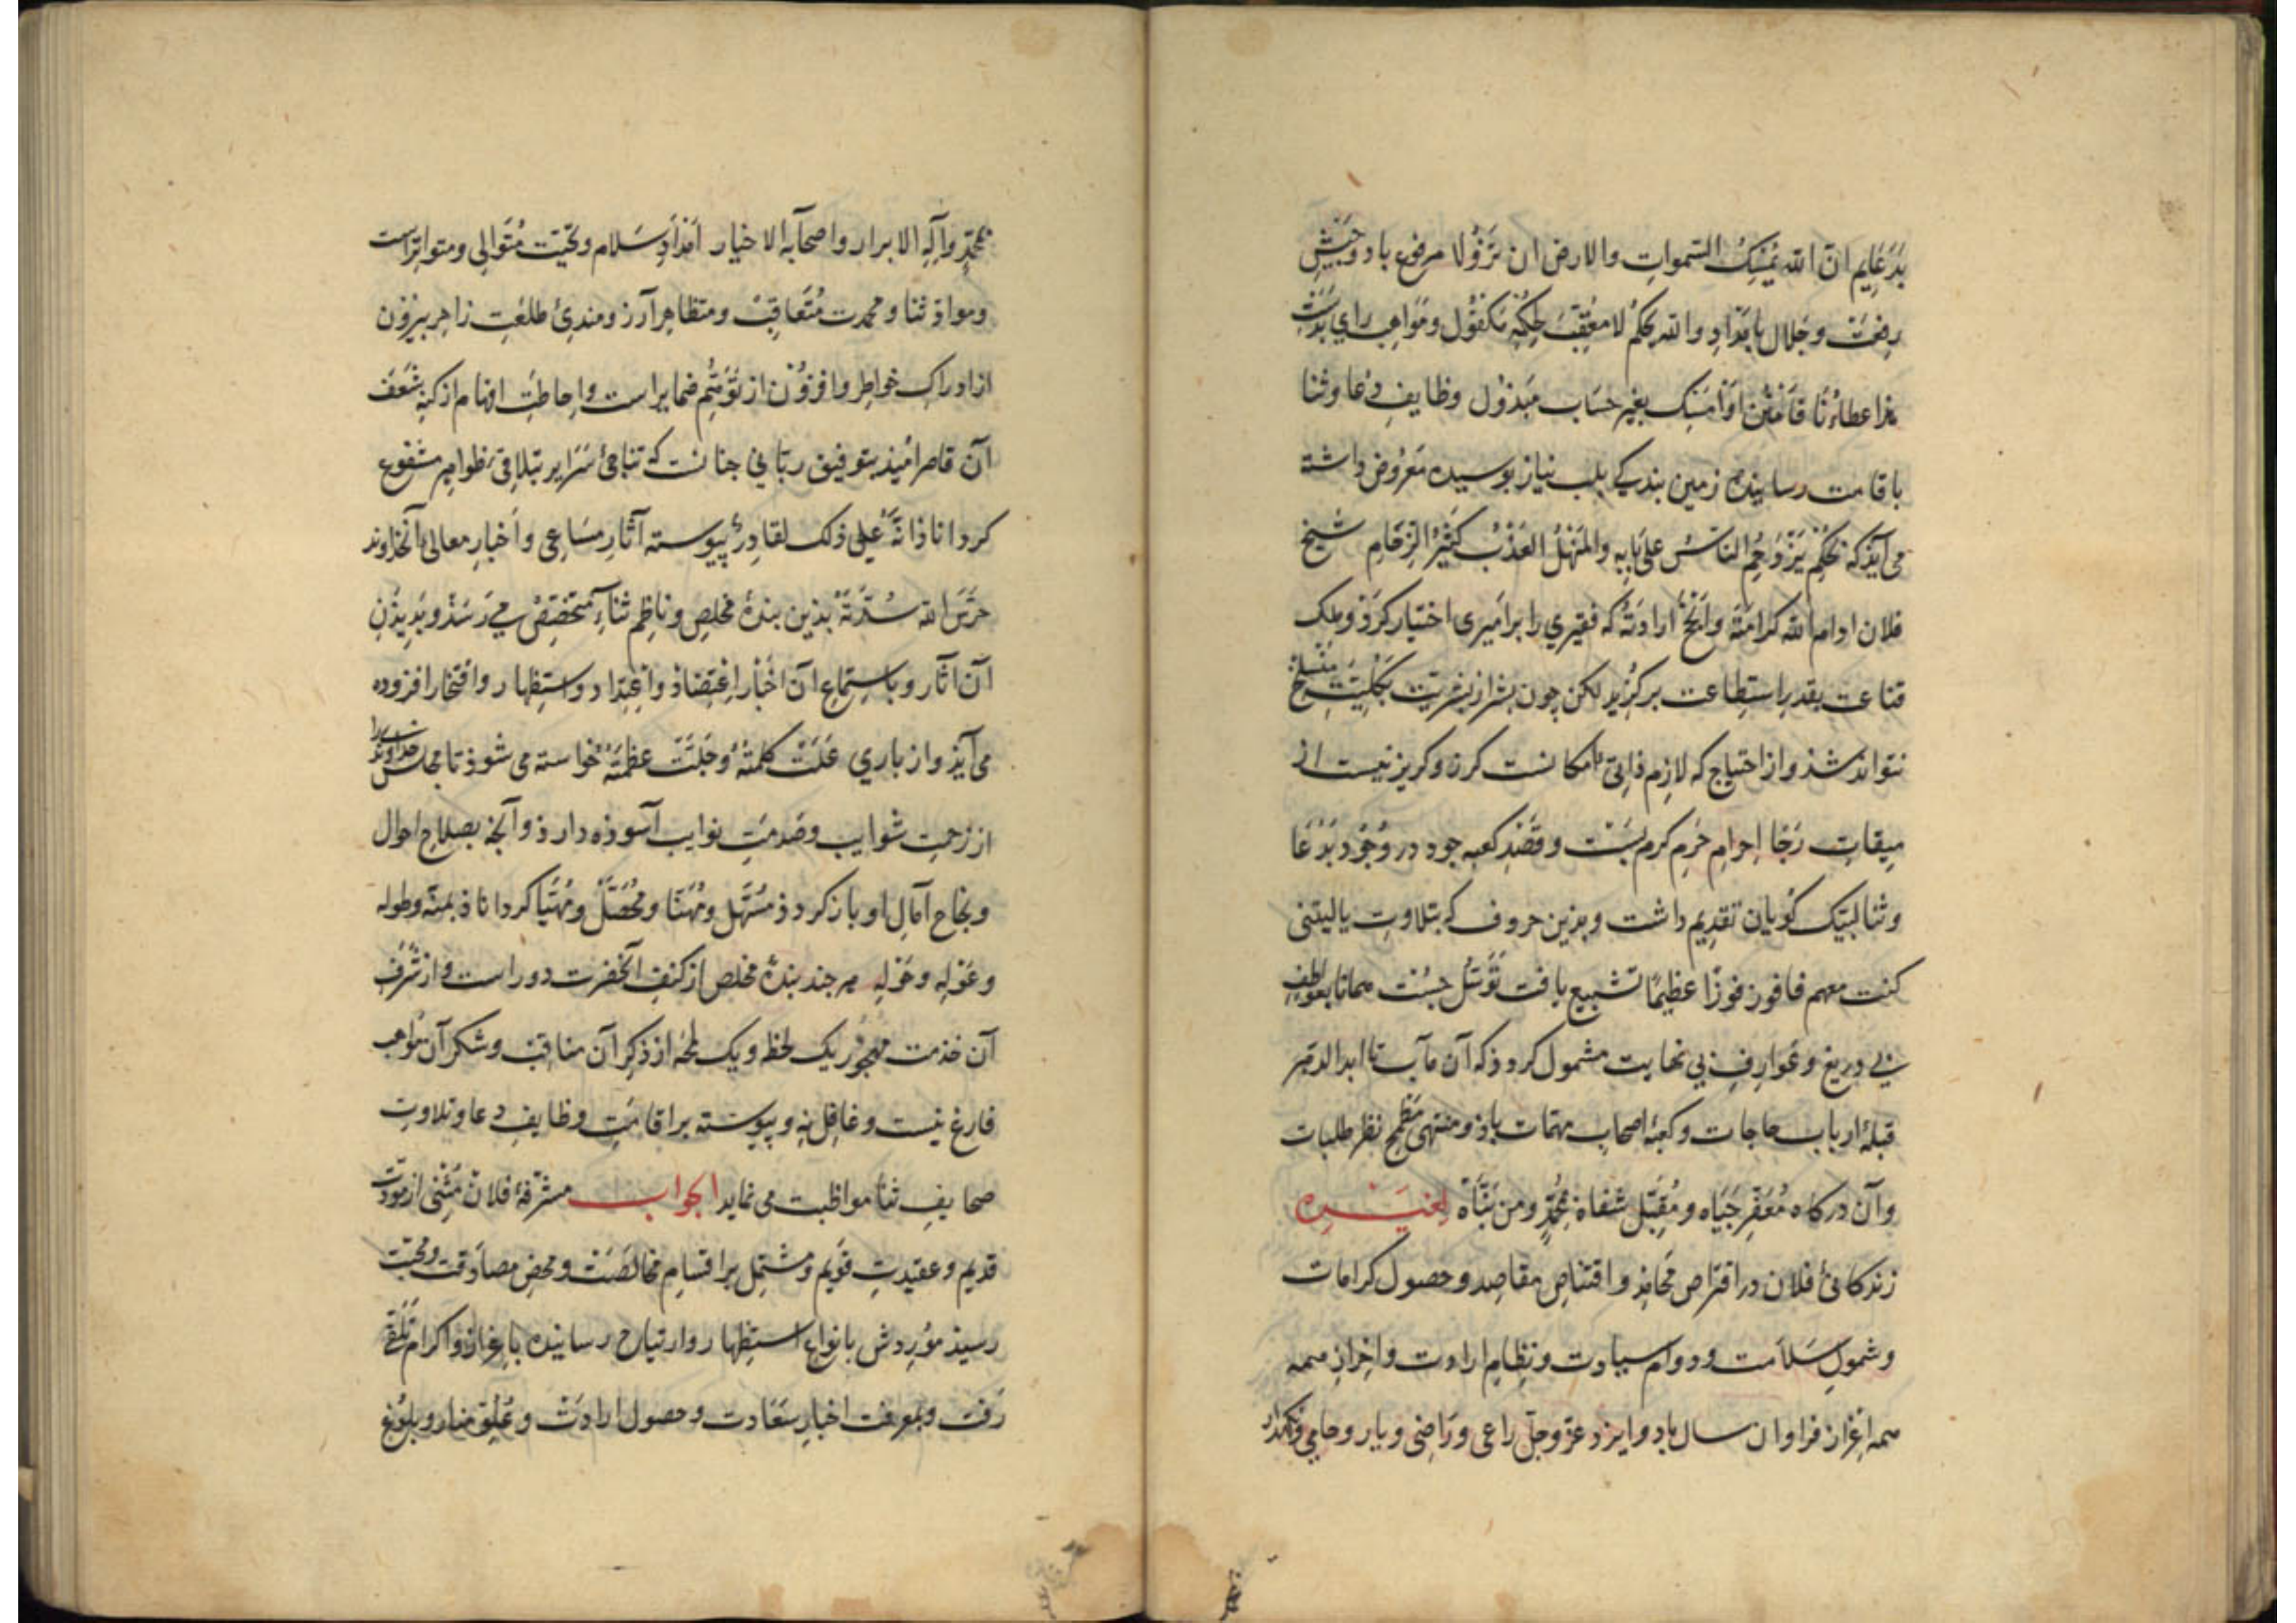 بدعایم ان الله یمسک السموات والارض ان تزولا مرفوع باد و جیش
رفعت و جلال بامداد والله یحکم لا معقب لحکمه مکفول و مواهب رای
هذا عطاؤنا فامنن او امسک بغیر حساب مبذول وظایف دعا و ثنا
باقامت رسانیده زمین بندکی بلب نیاز بوسیده معروض داشته
می آیذ که بحکم یزدحم الناس علی بابه والمنهل العذب کثیر الزحام شیخ
فلان ادام الله کرامته وانجح ارادته که فقیری را بر امیری اختیار کرد و ملک
قناعت بقدر استطاعت برکزید لکن چون بشر از بشریت بکلیت منسلخ
نتواند شذ و از احتیاج که لازم ذاتی امکانست کزیر و کریز نیست از
میقات رجا احرام حرم کرم بست و قصد کعبه جود در وجود بدعا
و ثنا لبیک کویان تقدیم داشت و بذین حروف که بتلاوت یا لیتنی
کنت معهم فافوز فوزا عظیما تشبیع یافت توسل جست همانا بعواطف
بی دریغ و عوارف بی نهایت مشمول کردذ که آن مآب تا ابد الدهر
قبله ارباب حاجات و کعبه اصحاب مهمات باذ و منتهی مطمح نظر طلبات
و آن درکاه معفر جباه و مقبل شفاه بمحمد ومن نباه لغیره
زندکانی فلان در اقتراص محامد و اقتناص مقاصد و حصول کرامات
و شمول سلامت و دوام سیادت و نظام ارادت و احراز همه
همه اعزاز فراوان سال باد و ایزد عز و جل راعی و راضی و یار و حامی و نکهدار
بمحمد وآله الابرار واصحابه الاخیار امداد سلام و تحیت متوالی و متواترست
و مواد ثنا و محمدت متعاقب و متظاهر آرزومندی طلعت زاهر بیرون
از ادراک خواطر و افزون از توهم ضمایر است و احاطت افهام از کنه شعف
آن قاصر امیذ بتوفیق ربانی جنانست که تناجی سرایر بتلاقی ظواهر مشفوع
کرداناذ انه علی ذلک لقادر پیوسته آثار مساعی و اخبار معالی آنخداوند
حرس الله سدته بذین بنده مخلص و ناظم ثناء متخصص می رسذ و بدیذن
آن اثار و باستماع ان اخبار اعتضاذ و اعتداد و استظهار و افتخار افزوده
می آیذ و از باری علت کلمته وجلت عظمته خواسته می شوذ تا مجلس خداوند را
از زحمت شوایب و صدمت نوایب آسوذه دارذ و آنجه بصلاح احوال
و نجاح آمال او باز کردذ مسهل و مهنا و محصل و مهیا کرداناذ بمنه وطوله
وعوله وحوله هر جند بنده مخلص از کنف آنحضرت دور است و از شرف
آن خذمت مهجور یک لحظه و یک لمحه از ذکر آن مناقب و شکر آن مواهب
فارغ نیست و غافل نه و پیوسته بر اقامت وظایف دعا و تلاوت
صحایف ثنا مواظبت می نماید الجواب مشرفه فلان مثنی از مودت
قدیم و عقیدت قویم و مشتمل بر اقسام مخالصت و محض مصادقت و محبت
رسیذ موردش بانواع استظهار و ارتیاح رسانیده باعزاز و اکرام تلقی
رفت و بمعرفت اخبار سعادت و حصول ارادت و علو منار و بلوغ